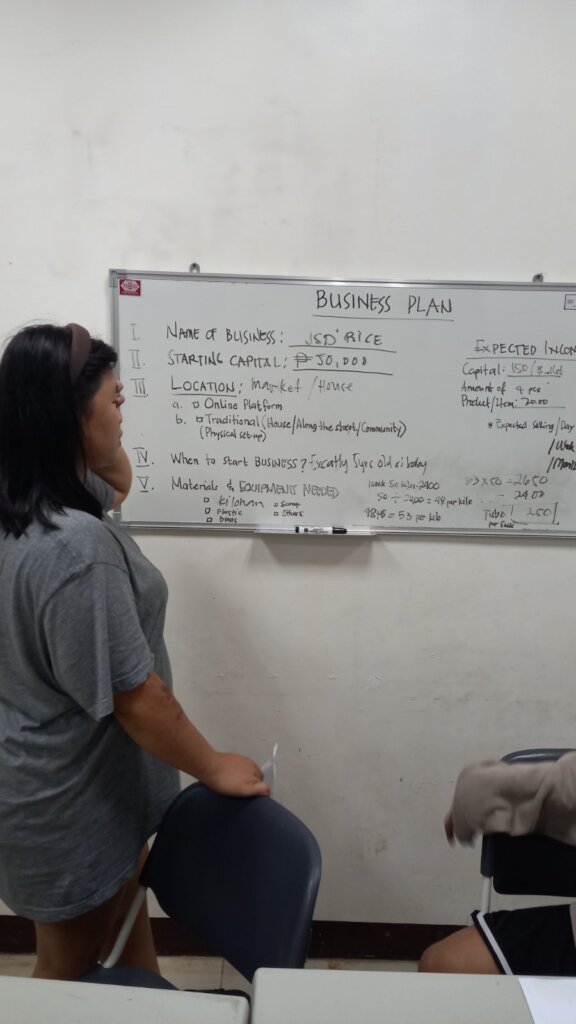 BUSINESS PLAN
I. NAME OF BUSINESS: JSD' RICE
II. STARTING CAPITAL: ₱ 50,000
III. LOCATION: Market / House
a. Online Platform
b. Traditional (House/Along the street/Community)
(Physical set-up)
IV. When to start BUSINESS?
V. Materials & EQUIPMENTS NEEDED
Plastic
Others
EXPECTED INCOM
Capital: 150
Amount of 4 pcs
Product/Item: 20.00
Expected Selling/Day
/Week
/Month
50 ÷ 2400 = 48 per kilo
48+5 = 53 per kilo
53 x 50 = 2650
- 2400
Tubo 250
per Sack